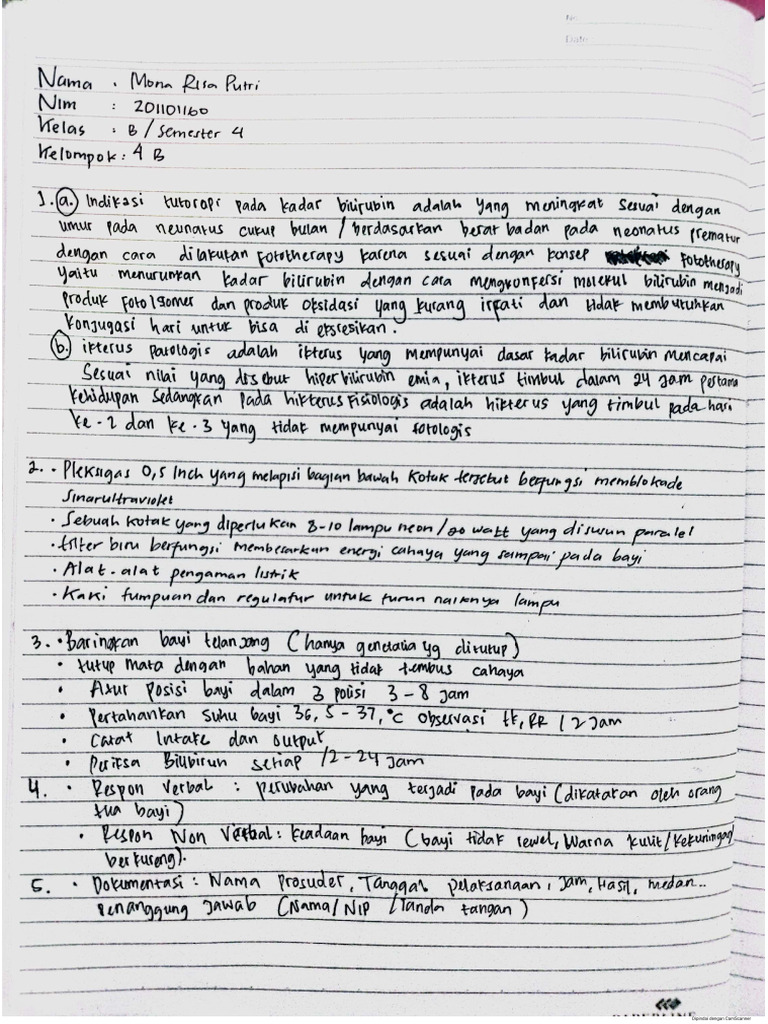 No.
Date
Nama : Mona Risa Putri
Nim : 201101160
Kelas : B / Semester 4
Kelompok : 4 B
1. a. Indikasi tutoropi pada kadar bilirubin adalah yang meningkat sesuai dengan
umur pada neunatus cukup bulan / berdasarkan berat badan pada neonatus prematur
dengan cara dilakukan fototherapy karena sesuai dengan konsep fototherapy
yaitu menurunkan kadar bilirubin dengan cara mengkonfersi molekul bilirubin menjadi
produk fotoIsomer dan produk oksidasi yang kurang irpati dan tidak membutuhkan
konjugasi hari untuk bisa di eksresikan.
b. ikterus patologis adalah ikterus yang mempunyai dasar kadar bilirubin mencapai
Sesuai nilai yang disebut hiperbilirubin emia, ikterus timbul dalam 24 jam pertama
kehidupan sedangkan pada hikterus fisiologis adalah hikterus yang timbul pada hari
ke-2 dan ke-3 yang tidak mempunyai fotologis
2. • Pleksigas 0,5 Inch yang melapisi bagian bawah kotak tersebut berfungsi memblokade
sinarultraviolet
• Sebuah kotak yang diperlukan 8-10 lampu neon / 20 watt yang disusun paralel
• filter biru berfungsi membesarkan energi cahaya yang sampai pada bayi
• Alat-alat pengaman listrik
• Kaki tumpuan dan regulatur untuk turun naiknya lampu
3. • Baringkan bayi telanjang (hanya genetaria yg ditutup)
• tutup mata dengan bahan yang tidak tembus cahaya
• Atur posisi bayi dalam 3 posisi 3-8 jam
• Pertahankan suhu bayi 36,5-37,°C observasi tt, RR / 2 Jam
• Catat Intake dan output
• Periksa Bilibirun setiap 12-24 jam
4. • Respon Verbal : perubahan yang terjadi pada bayi (dikatakan oleh orang
tua bayi)
• Respon Non Verbal : keadaan bayi (bayi tidak rewel, Warna kulit/kekuningan
berkurang).
5. • Dokumentasi : Nama prosuder, Tanggal pelaksanaan, Jam, Hasil, medan..
Penanggung Jawab (Nama/NIP /Tanda tangan)
Dipindai dengan CamScanner